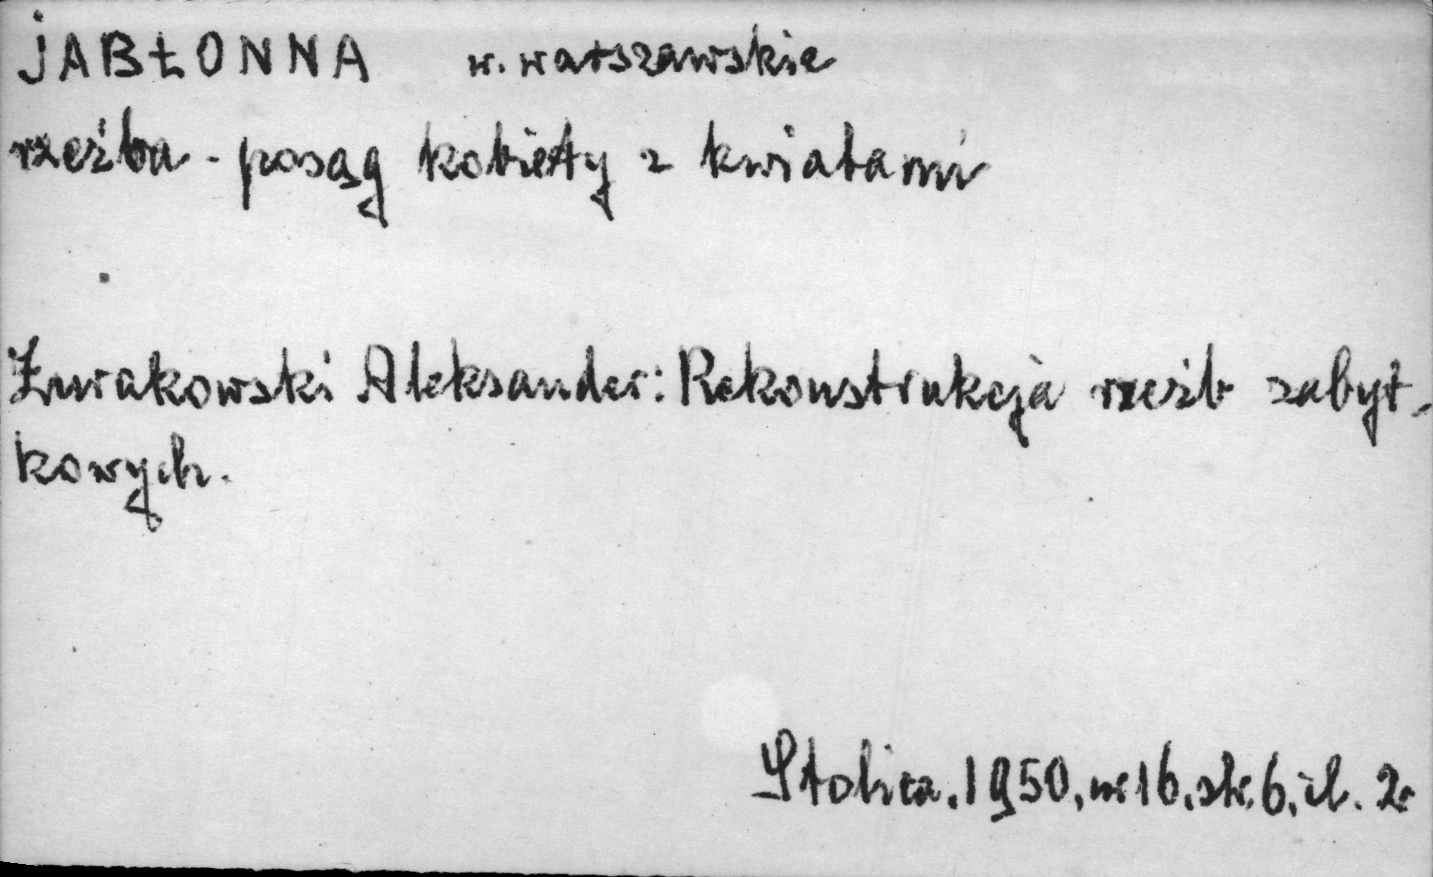 JABŁONNA w. warszawskie
rzeźba - posąg kobiety z kwiatami
Żurakowski Aleksander: Rekonstrukcja rzeźb zabyt-
kowych.
Stolica. 1950, nr 16, str. 6, il. 2.